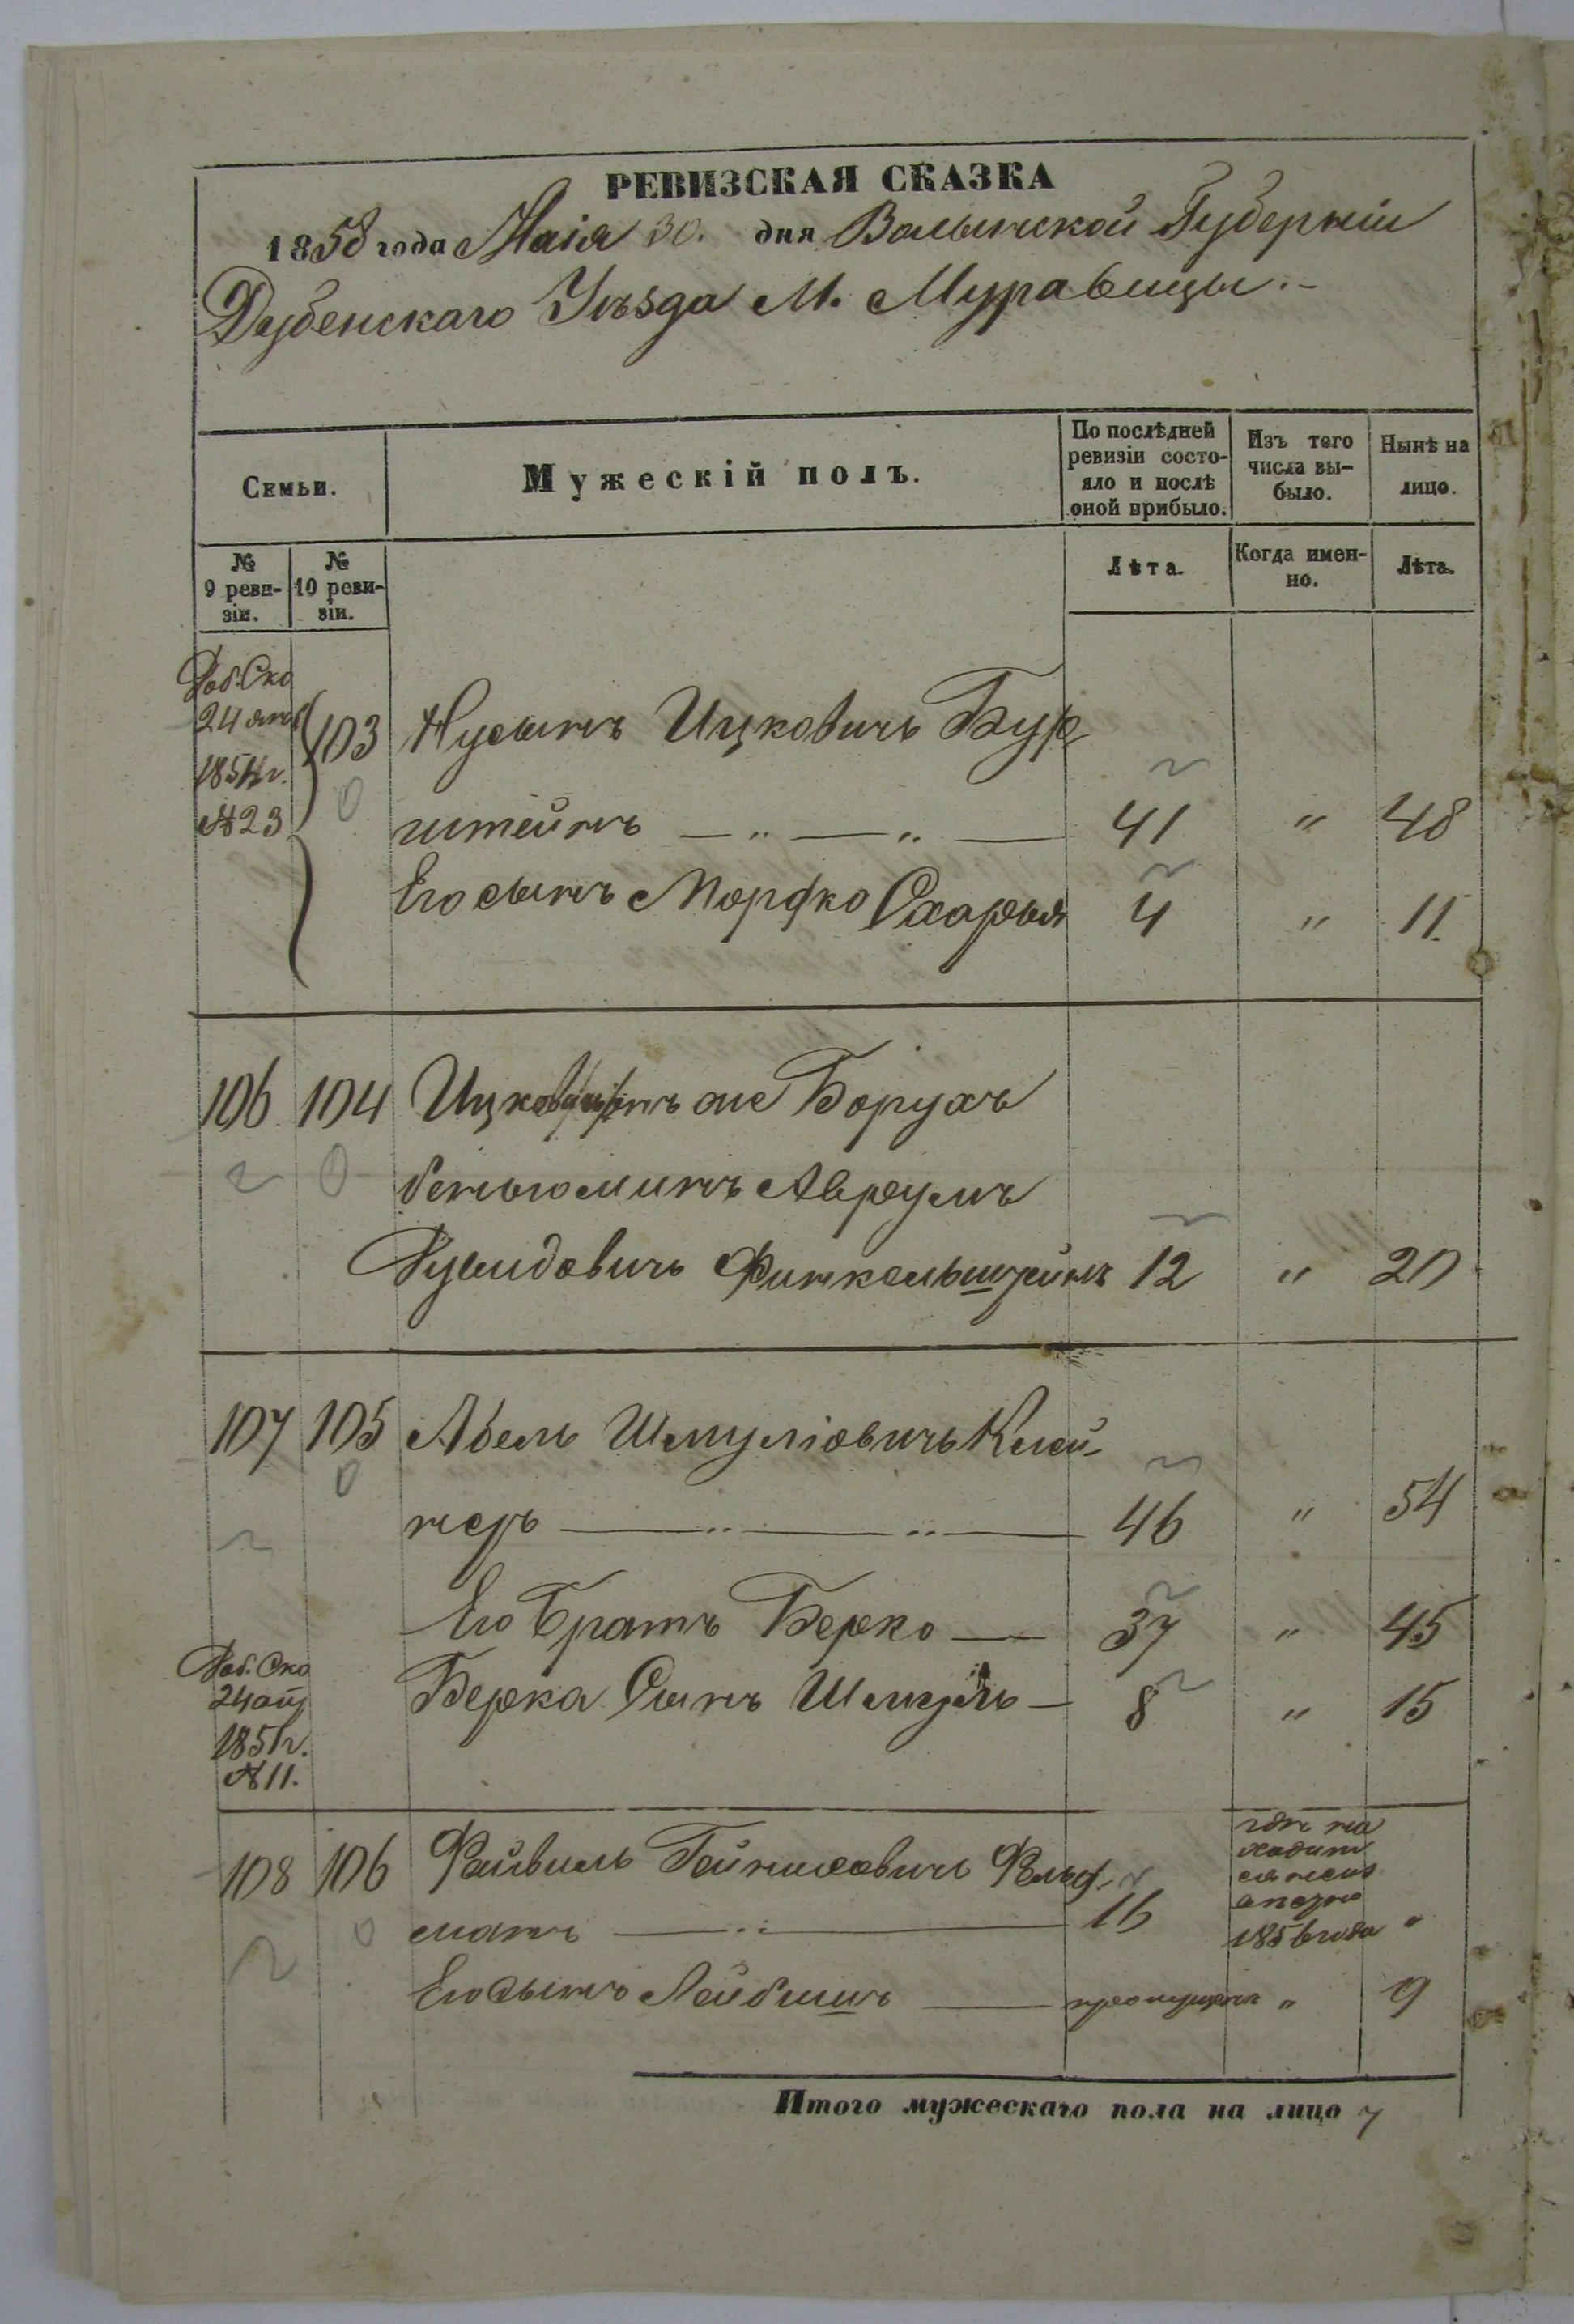 РЕВИЗСКАЯ СКАЗКА
1858 года Маія 30. дня Волынской Губерніи
Дубенскаго Уѣзда М. Муравицы.-
Семьи.
Мужескій полъ.
По послѣдней ревизіи состояло и послѣ оной прибыло.
Изъ того числа выбыло.
Нынѣ на лицо.
№ 9 ревизіи.
№ 10 ревизіи.
Лѣта.
Когда именно.
Лѣта.
Доб. Ска
24
1851 г.
№ 23
103 Нусынъ Ицковичъ Бур
штейнъ — „ — „ — 41 „ 48
Его сынъ Мордко Сахарья 4 „ 11.
106 104 Ицко онъ же Борухъ
беньюминъ Аврумъ
Дувидовичъ Финкельштейнъ 12 „ 20
107 105 Абель Шмуліовичъ Клей-
неръ — „ — „ — 46 „ 54
Его братъ Берко — 37 „ 45
Доб. Ска
24
1851 г.
№ 11.
Берка Сынъ Шмуль — 8 „ 15
108 106 Файвишъ Гейниховичъ Фельд-
манъ — „ — 16
гдѣ на
ходит
ся неиз
1856 года „
Его сынъ Лейбишъ — пропущенъ „ 9
Итого мужескаго пола на лицо 7